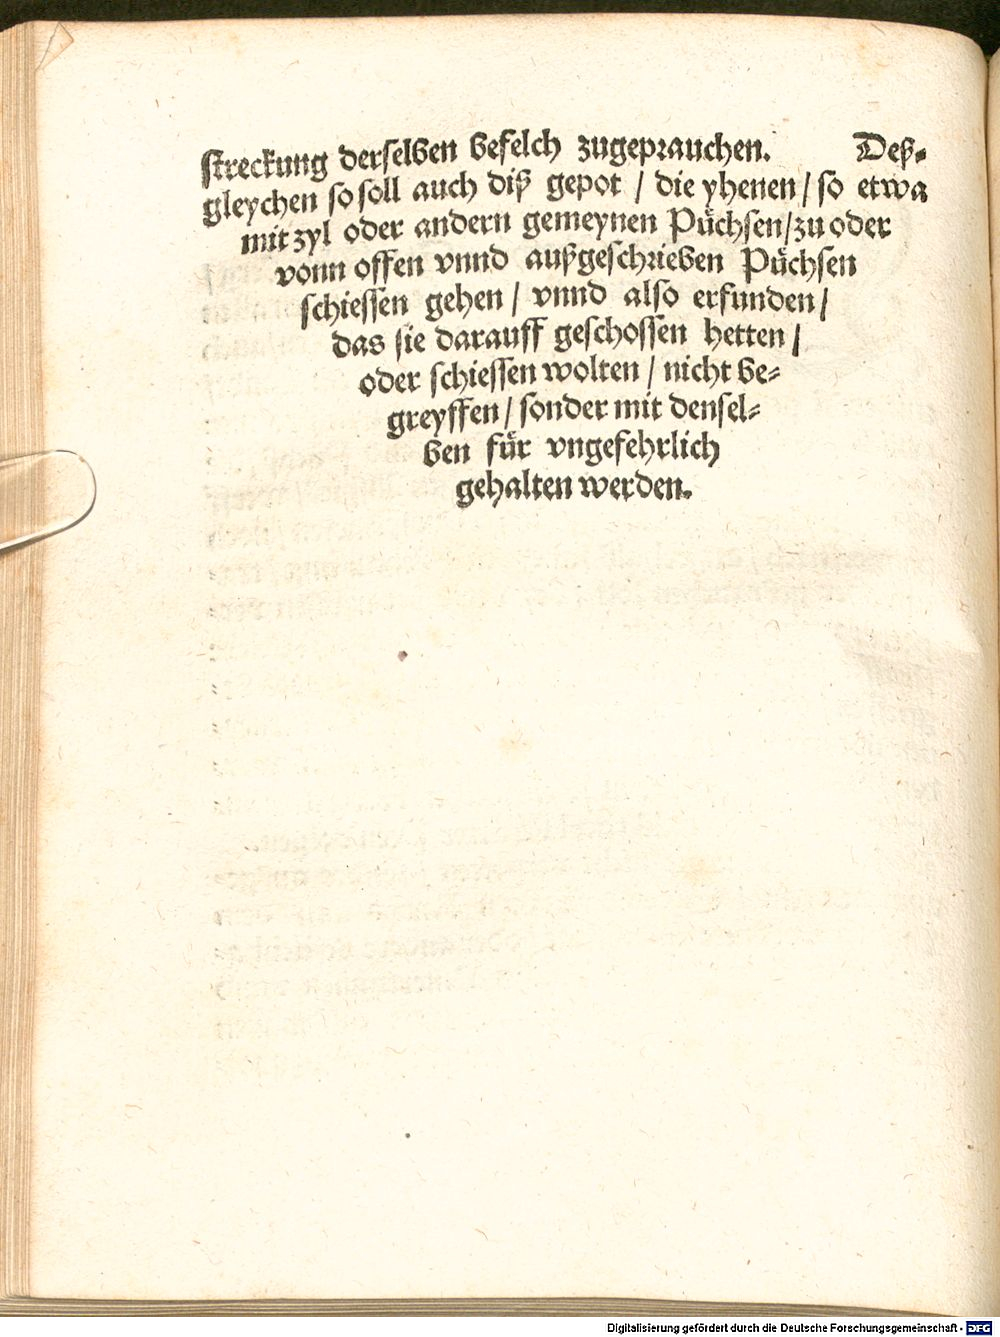 streckung derselben befelch zugeprauchen. Deß-
gleychen so soll auch diß gepot / die yhenen / so etwa
mit zyl oder andern gemeynen Püchsen / zu oder
vonn offen vnnd außgeschrieben Püchsen
schiessen gehen / vnnd also erfunden /
das sie darauff geschossen hetten /
oder schiessen wolten / nicht be-
greyffen / sonder mit densel-
ben für vngefehrlich
gehalten werden.
Digitalisierung gefördert durch die Deutsche Forschungsgemeinschaft - DFG